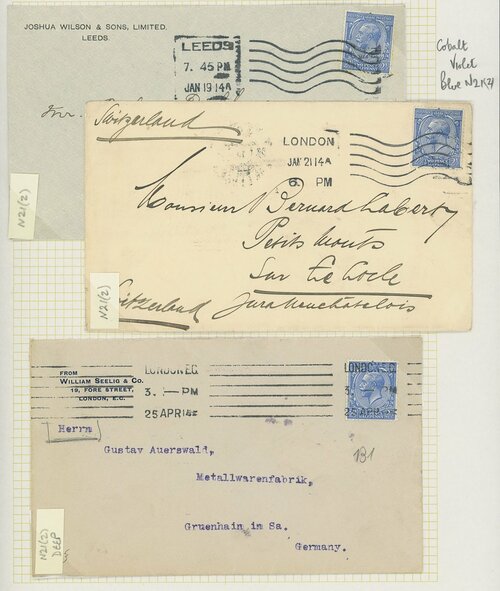 JOSHUA WILSON & SONS, LIMITED.
LEEDS.
LEEDS
7. 45 PM
JAN 19 14
Cobalt
Violet
Blue N21(2)
N21(2)
Switzerland
LONDON
JAN 21 14
6. PM
Monsieur Bernard
Petits Monts
Sur Le Locle
Jura Neuchatelois
Switzerland
N21(2)
FROM
WILLIAM SEELIG & CO.
19, FORE STREET,
LONDON, E.C.
LONDON.E.C.
3. — PM
25 APR 14
LONDON.E.C.
3. — PM
25 APR 14
Herrn
Gustav Auerswald,
Metallwarenfabrik,
Gruenhain in Sa.
Germany.
131
N21(2)
DEEP